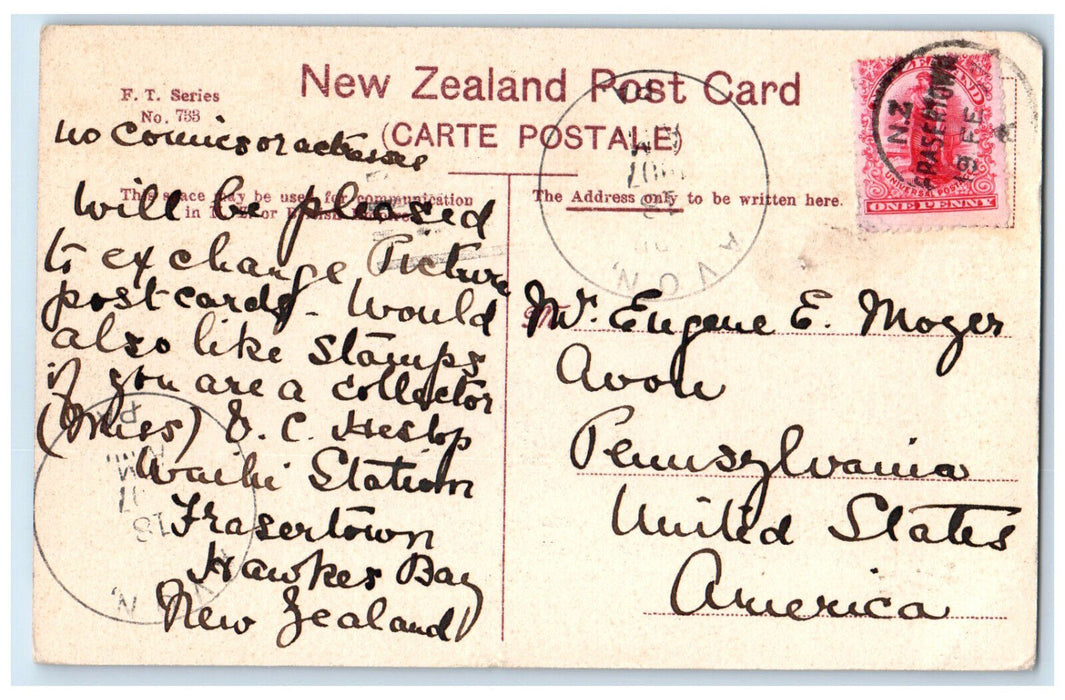 New Zealand Post Card
(CARTE POSTALE)
F. T. Series
No. 733
This space may be used for communication
in
The Address only to be written here.
ZEALAND
UNIVERSAL POSTAGE
ONE PENNY
N.Z
FRASERTOWN
19 FE
AVON,
PA.
1907
AVON,
PA.
no comics or actresses
Will be pleased
to exchange Picture
postcards. Would
also like Stamps
if you are a collector
(Miss) C. Heslop
Waihi Station
Frasertown
Hawkes Bay
New Zealand
Mr. Eugene E. Moyer
Avon
Pennsylvania
United States
America